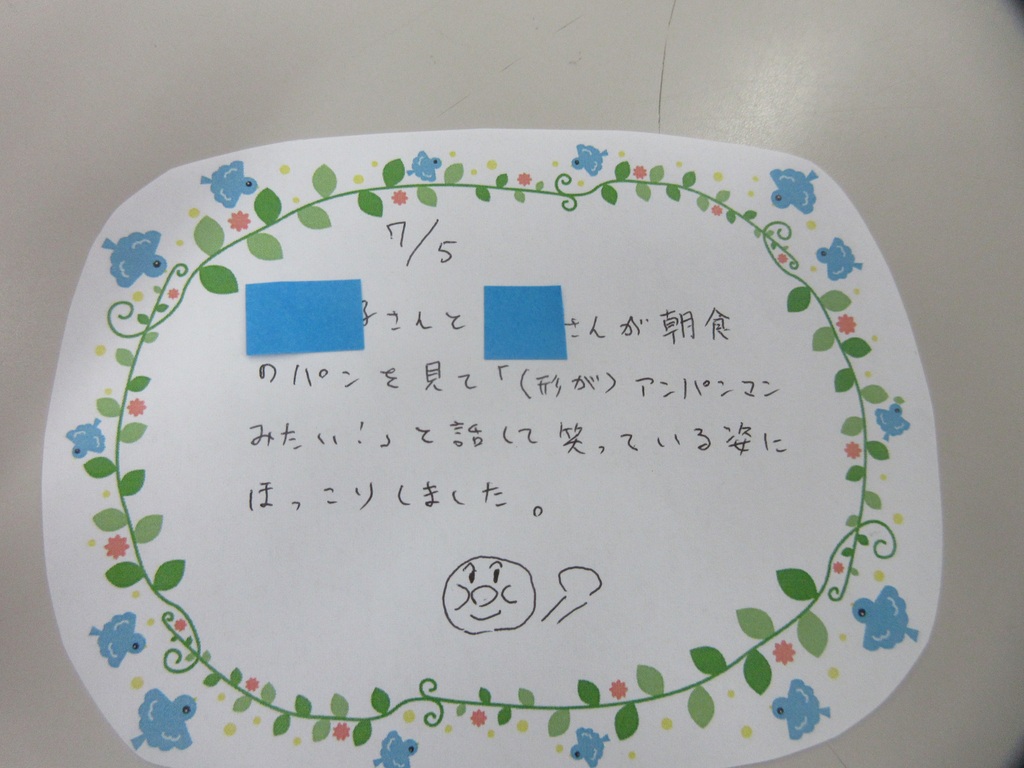 7/5
子さんと さんが朝食
のパンを見て「(形が)アンパンマン
みたい!」と話して笑っている姿に
ほっこりしました。